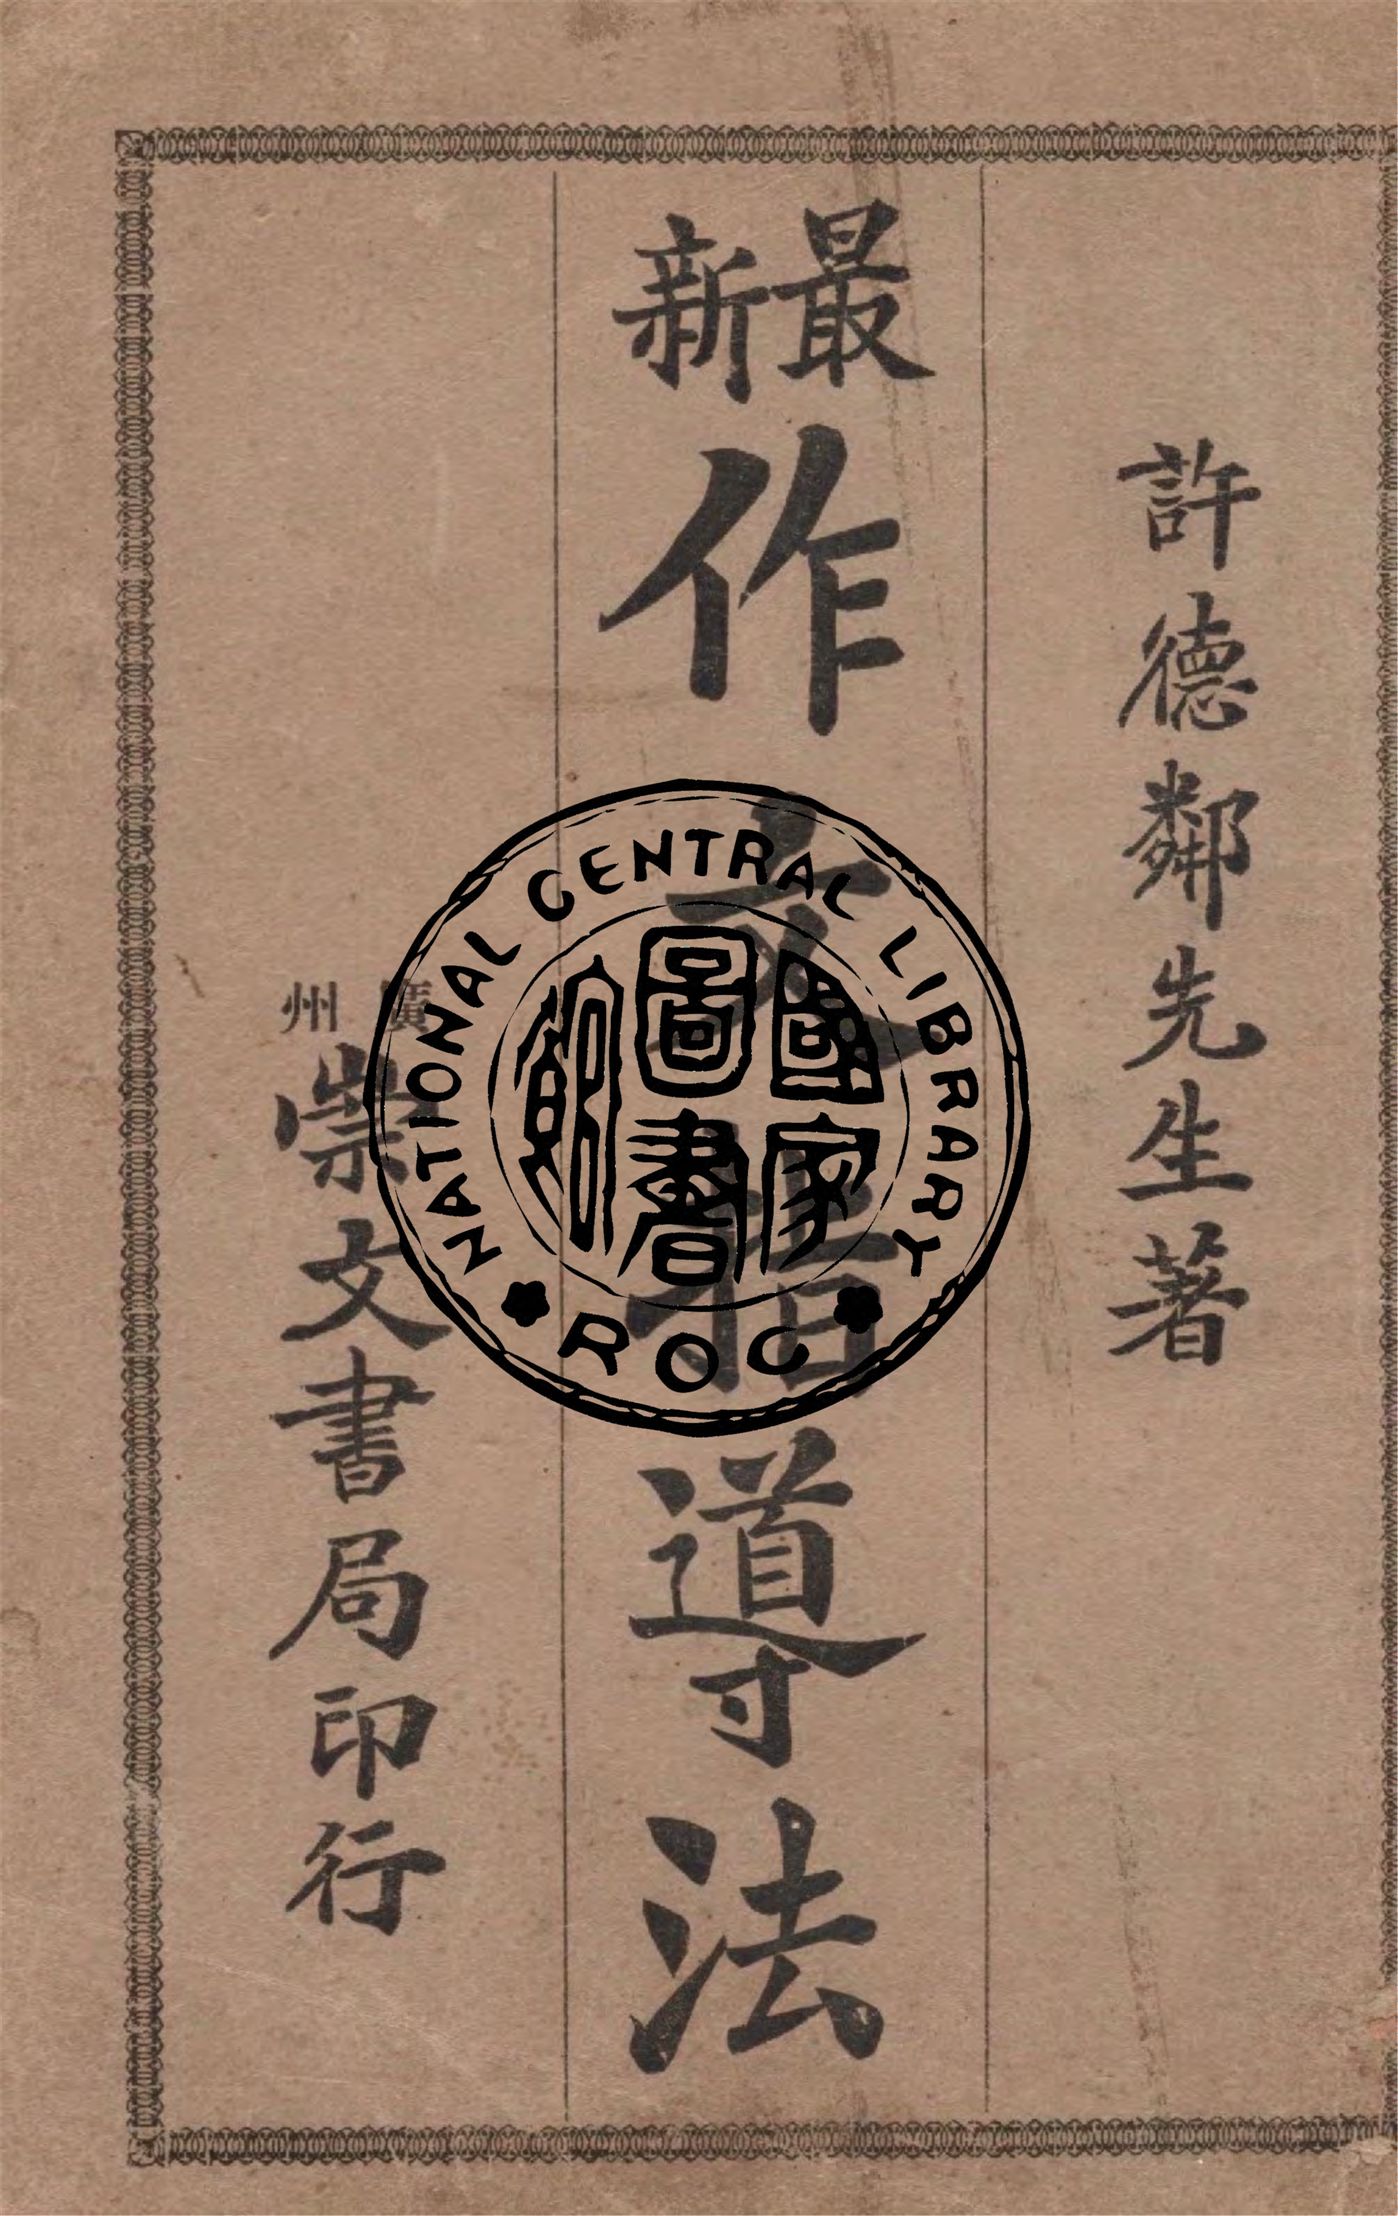 許德鄰先生著
最新
作文指導法
廣州
崇文書局印行
NATIONAL CENTRAL LIBRARY
國家圖書館
ROC